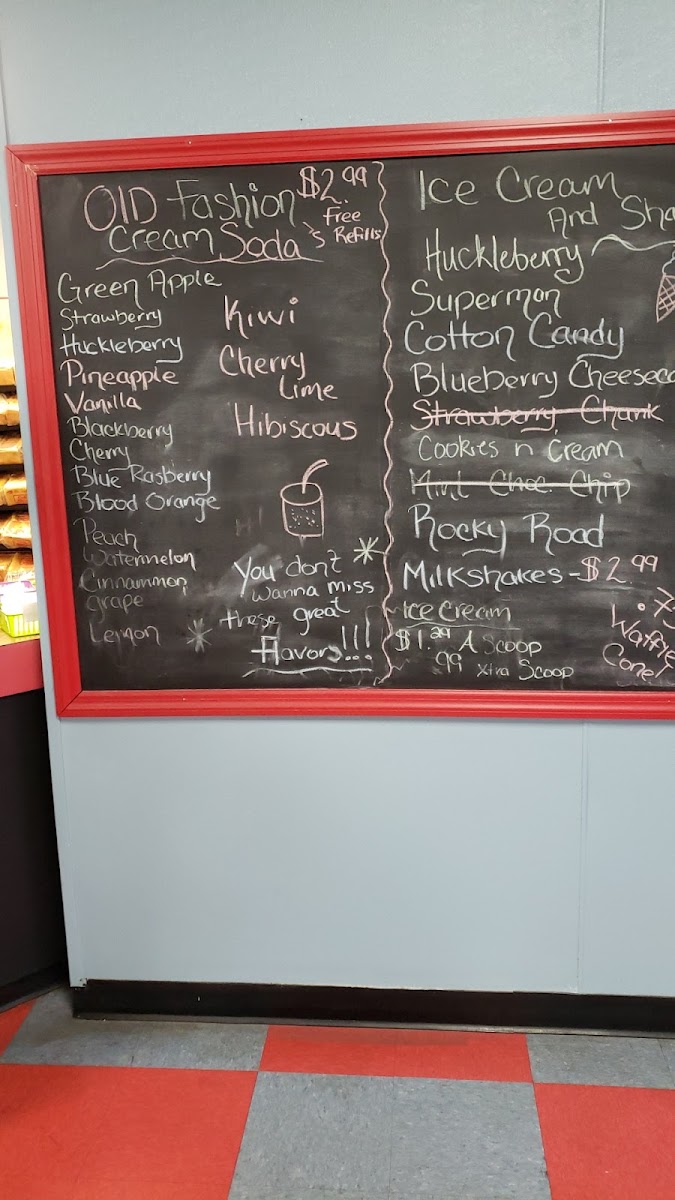 Old Fashion
Cream Soda's
$2.99
Free
Refills
Green Apple
Strawberry
Huckleberry
Pineapple
Vanilla
Blackberry
Cherry
Blue Rasberry
Blood Orange
Peach
Watermelon
Cinnammon
grape
Lemon
Kiwi
Cherry
Lime
Hibiscous
You don't
wanna miss
these great
Flavors!!!...
Ice Cream
And Sha
Huckleberry
Superman
Cotton Candy
Blueberry Cheeseca
Strawberry Chunk
Cookies n Cream
Mint Choc Chip
Rocky Road
Milkshakes - $2.99
Ice Cream
$1.29 A Scoop
99 Xtra Scoop
Waffle
Cone